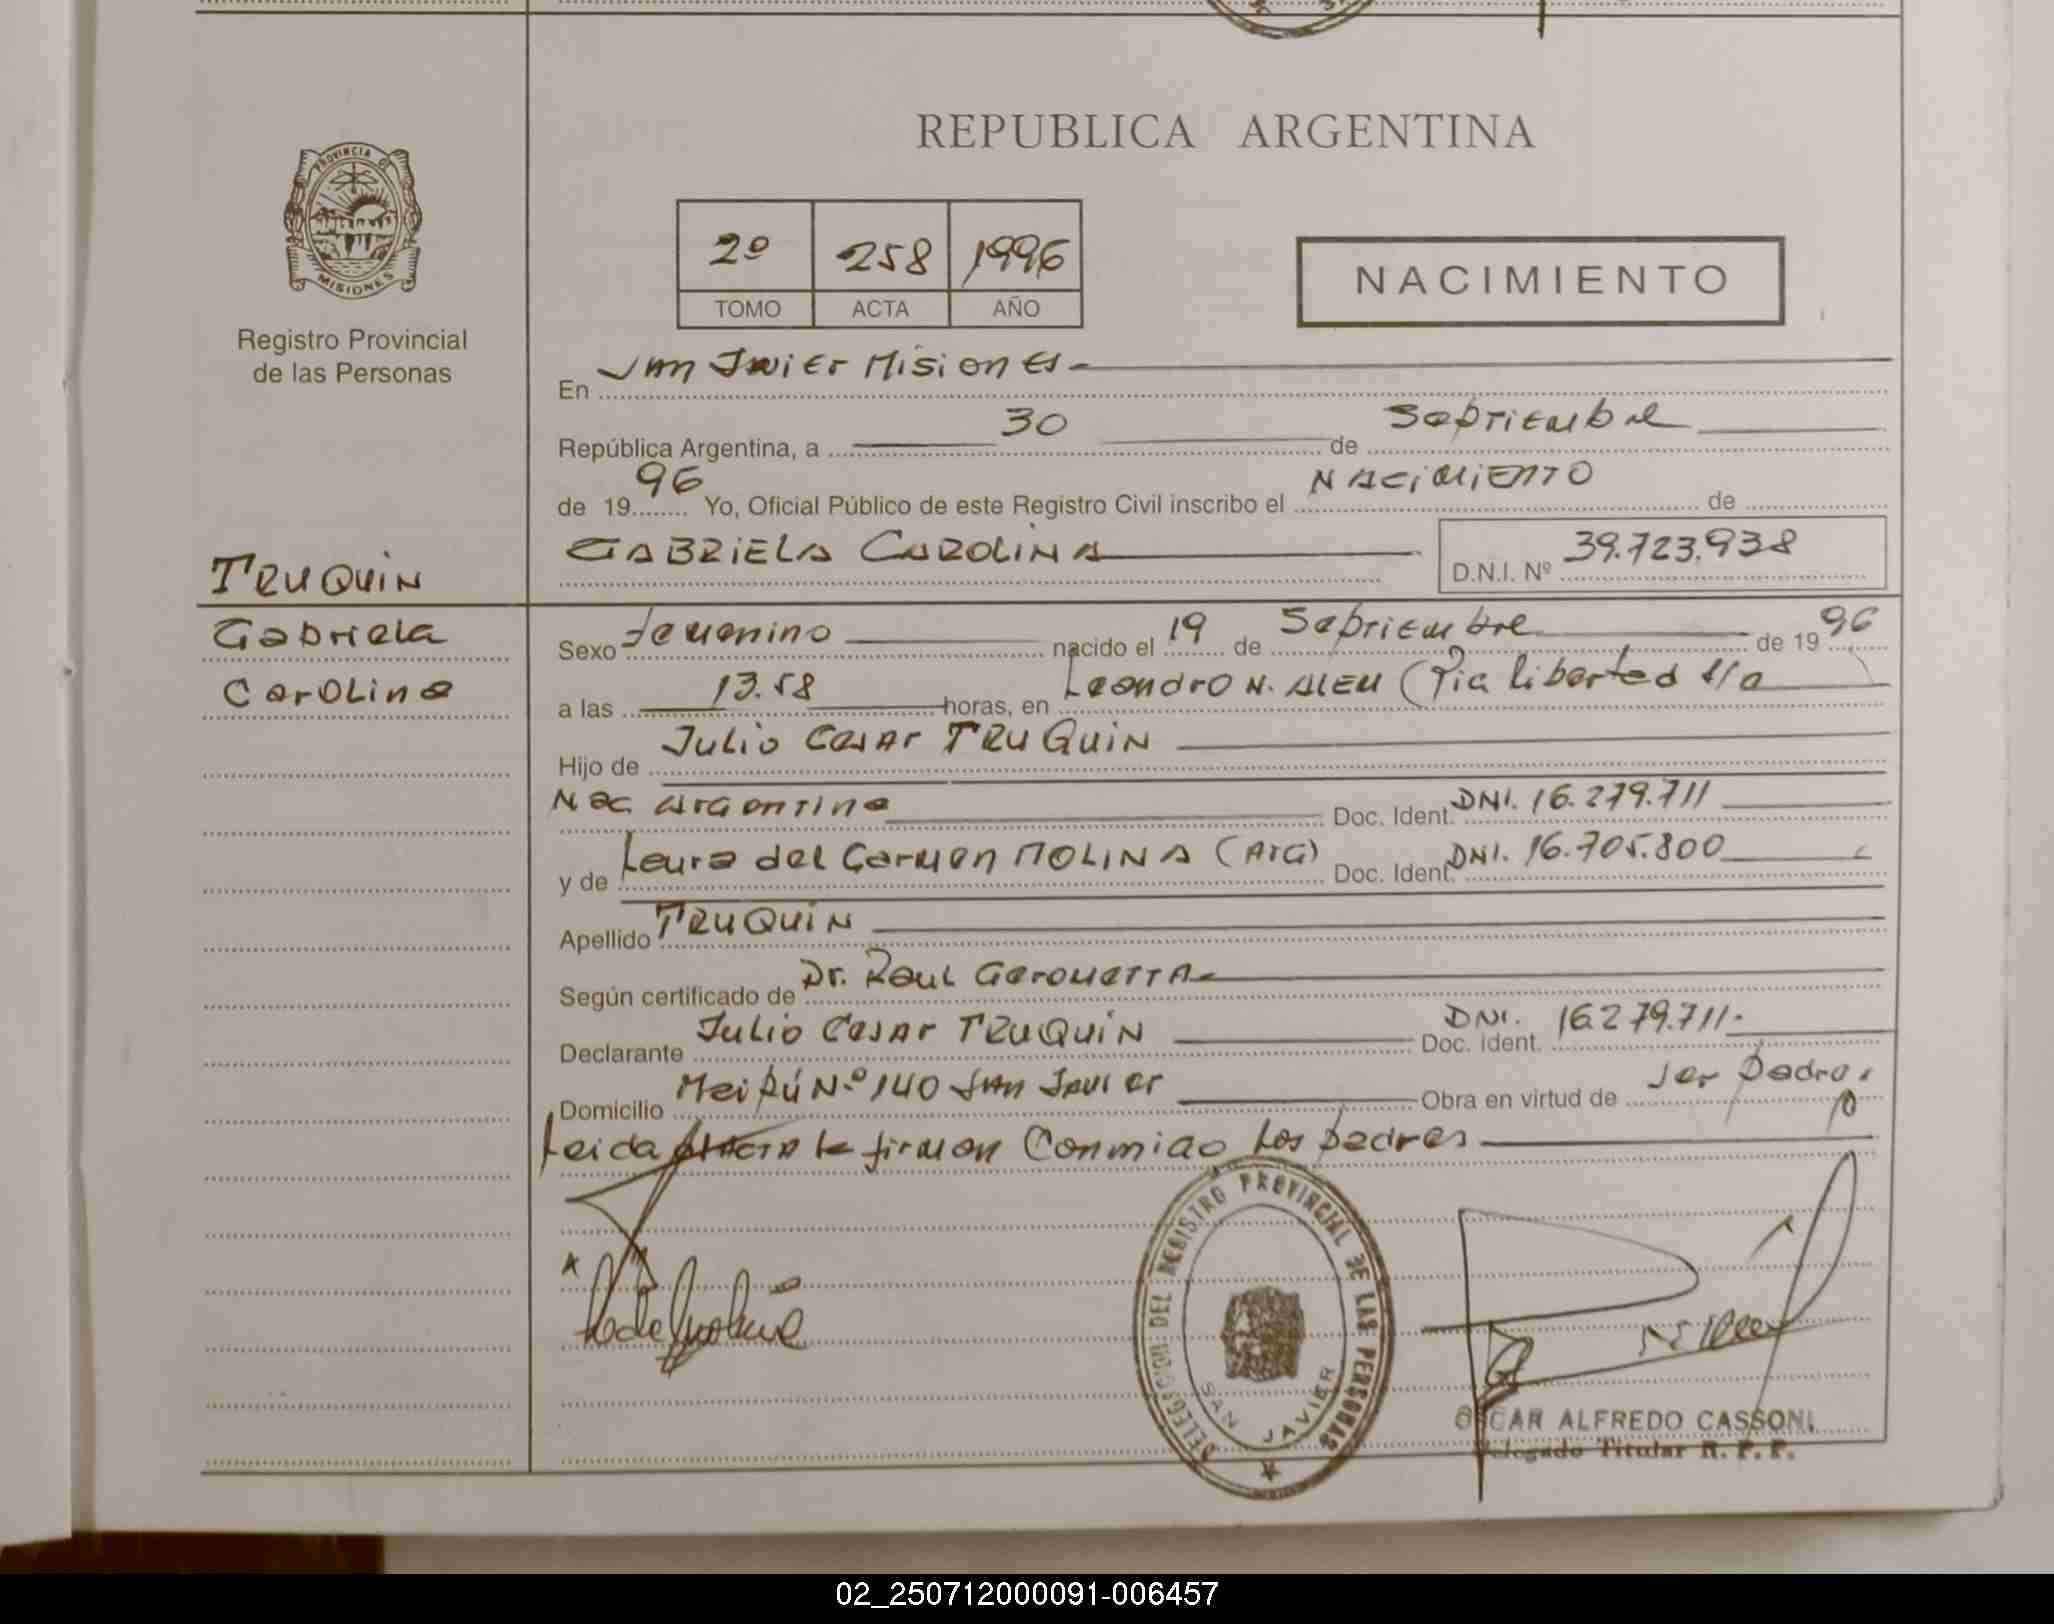 REPUBLICA ARGENTINA
PROVINCIA DE
MISIONES
Registro Provincial
de las Personas
2º 258 1996
TOMO ACTA AÑO
NACIMIENTO
En San Javier Misiones
República Argentina, a 30 de Septiembre
de 1996 Yo, Oficial Público de este Registro Civil inscribo el NACIMIENTO de
GABRIELA CAROLINA D.N.I. Nº 39.723.938
TRUQUIN
Gabriela
Carolina
Sexo Femenino nacido el 19 de Septiembre de 1996
a las 13.58 horas, en Leandro N. ALEM (Pia libertad s/a
Hijo de Julio Cesar TRUQUIN
Nac Argentina Doc. Ident. DNI. 16.279.711
y de Laura del Carmen MOLINA (ArG) Doc. Ident. DNI. 16.705.800
Apellido TRUQUIN
Según certificado de Dr. Raul
Declarante Julio Cesar TRUQUIN Doc. Ident. DNI. 16.279.711.
Domicilio Maipú N.º 140 San Javier Obra en virtud de ser padre.
Leida la firman Conmigo los padres
DELEGACION DEL REGISTRO PROVINCIAL DE LAS PERSONAS
SAN JAVIER
OSCAR ALFREDO CASSONI
Delegado Titular R. P. P.
02_250712000091-006457